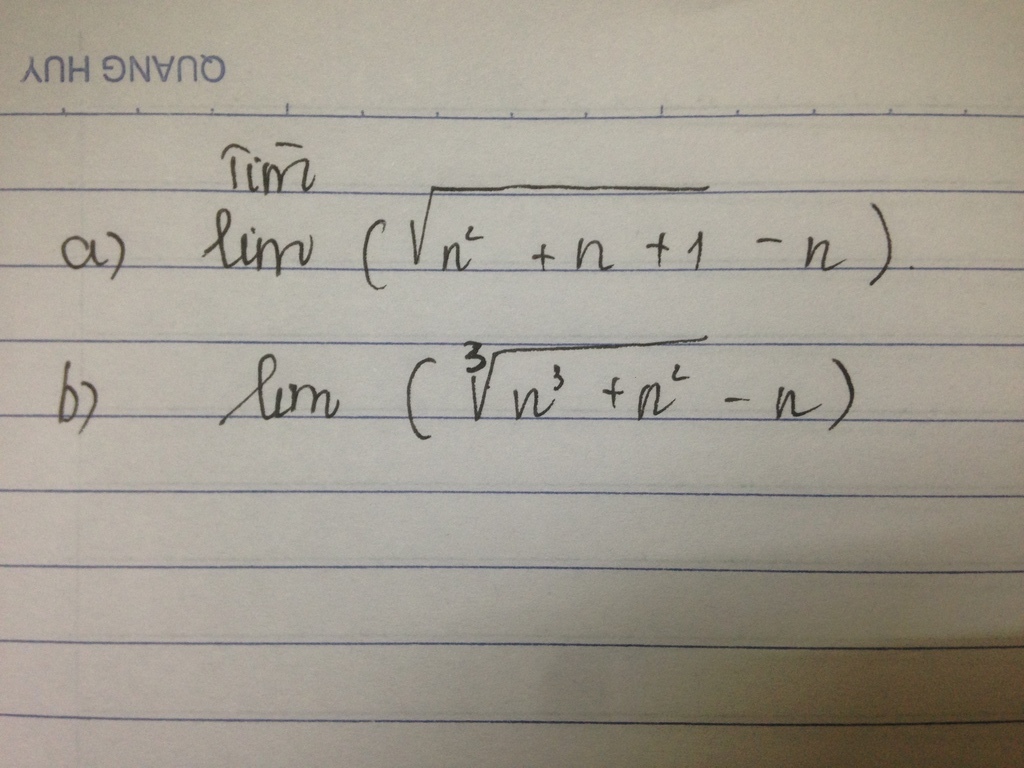 QUANG HUY
Tìm
a) lim (√(n² + n + 1) - n).
b) lim (∛(n³ + n²) - n)